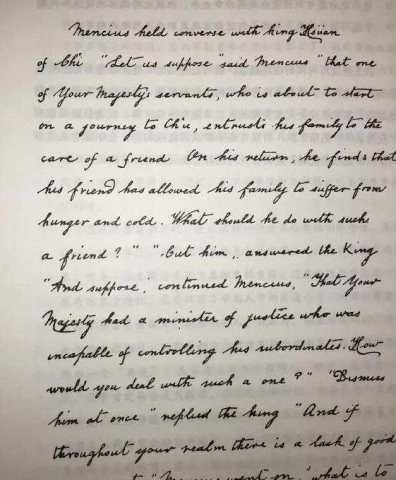 Mencius held converse with king Hsüan
of Chi "Let us suppose" said Mencius "that one
of Your Majesty's servants, who is about to start
on a journey to Ch'u, entrusts his family to the
care of a friend On his return, he finds that
his friend has allowed his family to suffer from
hunger and cold. What should he do with such
a friend?" "Cut him, answered the King
"And suppose", continued Mencius, "That Your
Majesty had a minister of justice who was
incapable of controlling his subordinates. How
would you deal with such a one?" "Dismiss
him at once" replied the king "And if
throughout your realm there is a lack of good
"Mencius went on, "what is to